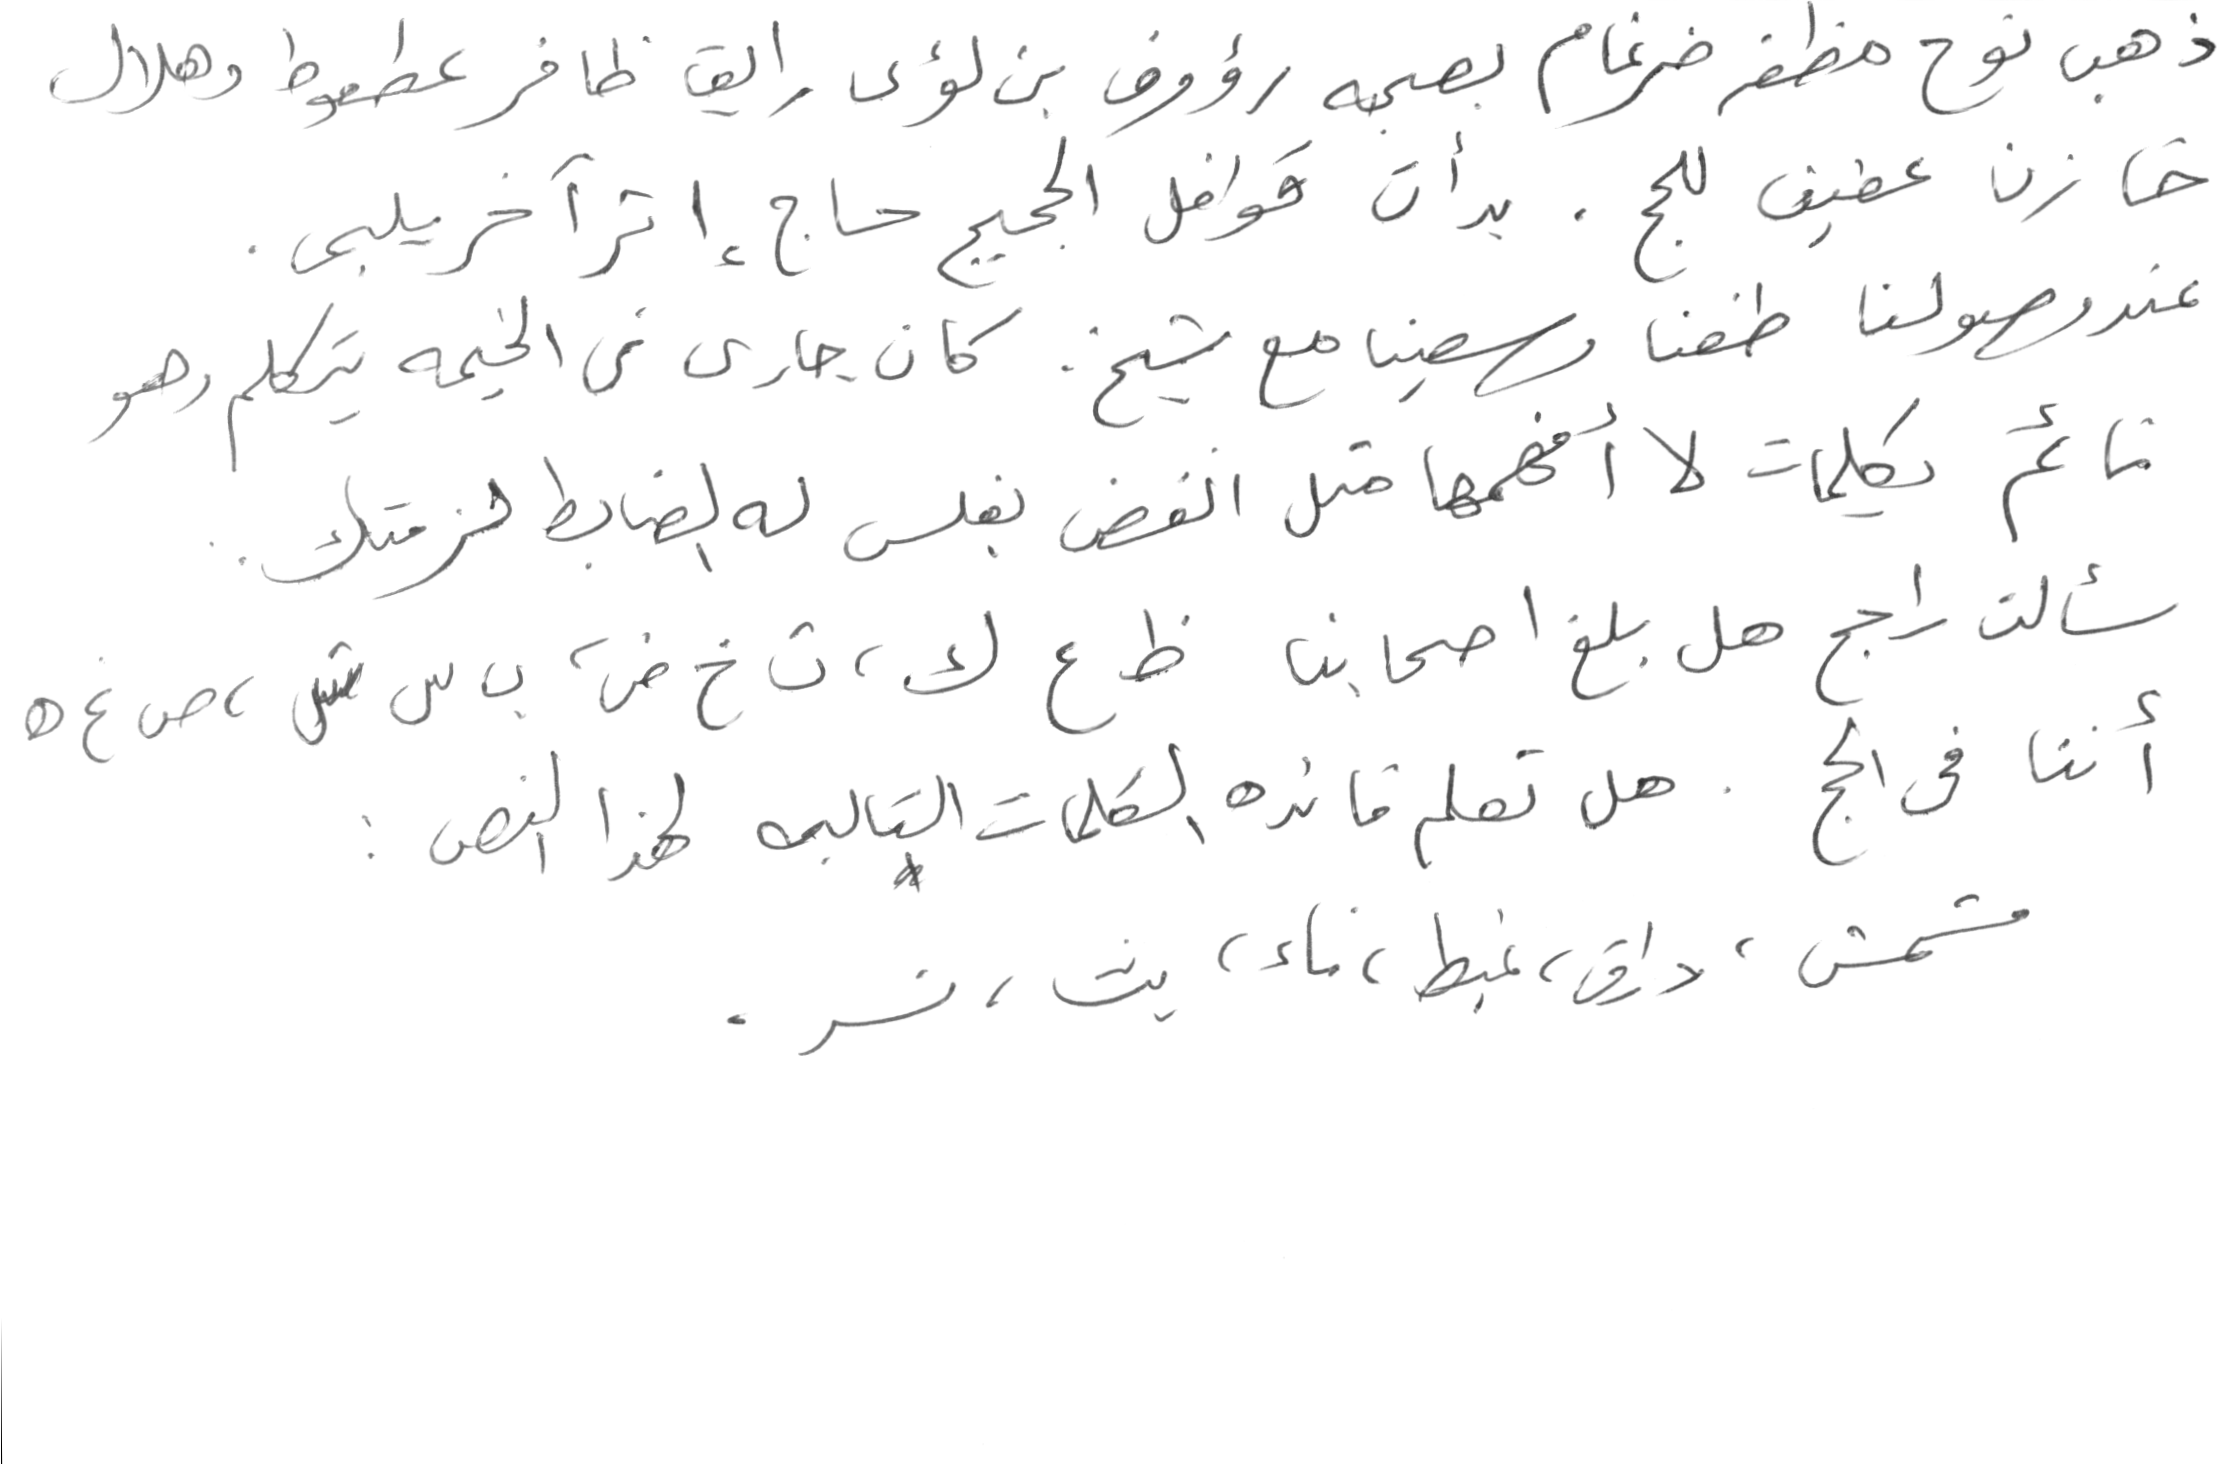 ذهب نوح مظفر ضرغام بصحبه رؤوف بن لؤى رايق ظافر عطعوط وهلال
خازن عفيف للحج . بدأت قوافل الحجيج حاج إثر آخر يلبى .
عند وصولنا طفنا وسعينا مع شيخ . كان جارى فى الخيمه يتكلم وهو
نائم بكلمات لا أفهمها مثل انقض بفلس له الضابط
سألت راجح هل بلغ اصحابنا ظ ع ك ، ث خ ض ، ب س ش ، ص غ ه
أننا فى الحج . هل تعلم فائده الكلمات التاليه لهذا النص :
مشمش ، دراق ، غبط ، ماء ، يث ، نسر .